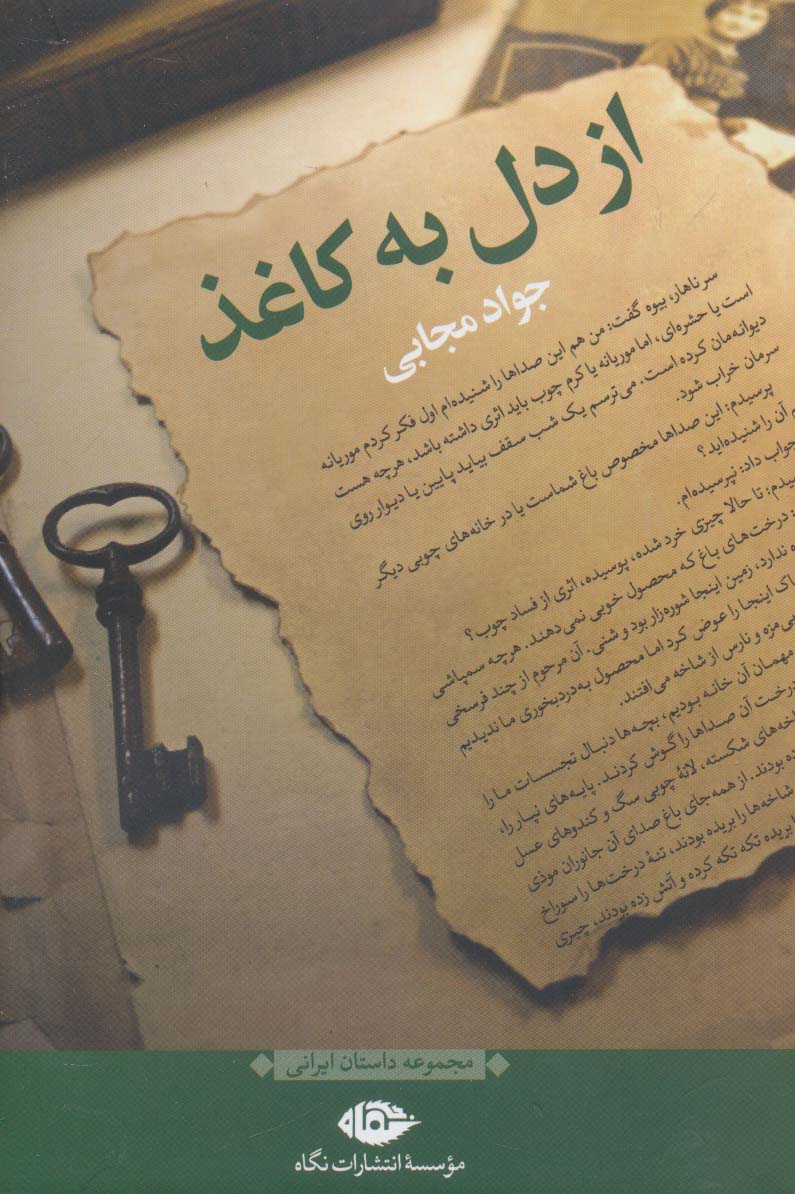 از دل به کاغذ
جواد مجابی
سر ناهار، بیوه گفت: من هم این صداها را شنیده‌ام اول فکر کردم موریانه
است یا حشره‌ای، اما موریانه یا کرم چوب باید اثری داشته باشد، هرچه هست
دیوانه‌مان کرده است. می‌ترسم یک شب سقف بیاید پایین یا دیوار روی
سرمان خراب شود.
پرسیدم: این صداها مخصوص باغ شماست یا در خانه‌های چوبی دیگر
آن را شنیده‌اید؟
جواب داد: نپرسیده‌ام.
تا حالا چیزی خرد شده، پوسیده، اثری از فساد چوب؟
درخت‌های باغ که محصول خوبی نمی‌دهند. هرچه سمپاشی
ندارد، زمین اینجا شوره‌زار بود و شنی. آن مرحوم از چند فرسخی
اینجا را عوض کرد اما محصول به‌دردبخوری ما ندیدیم
مزه و نارس از شاخه می‌افتند.
مهمان آن خانه بودیم، بچه‌ها دنبال تجسسات ما را
درخت آن صداها را گوش کردند. پایه‌های نپار را،
شکسته، لانهٔ چوبی سگ و کندوهای عسل
بودند. از همه‌جای باغ صدای آن جانوران موذی
شاخه‌ها را بریده بودند، تنهٔ درخت‌ها را سوراخ
بریده تکه تکه کرده و آتش زده بودند، چیزی
مجموعه داستان ایرانی
مؤسسهٔ انتشارات نگاه